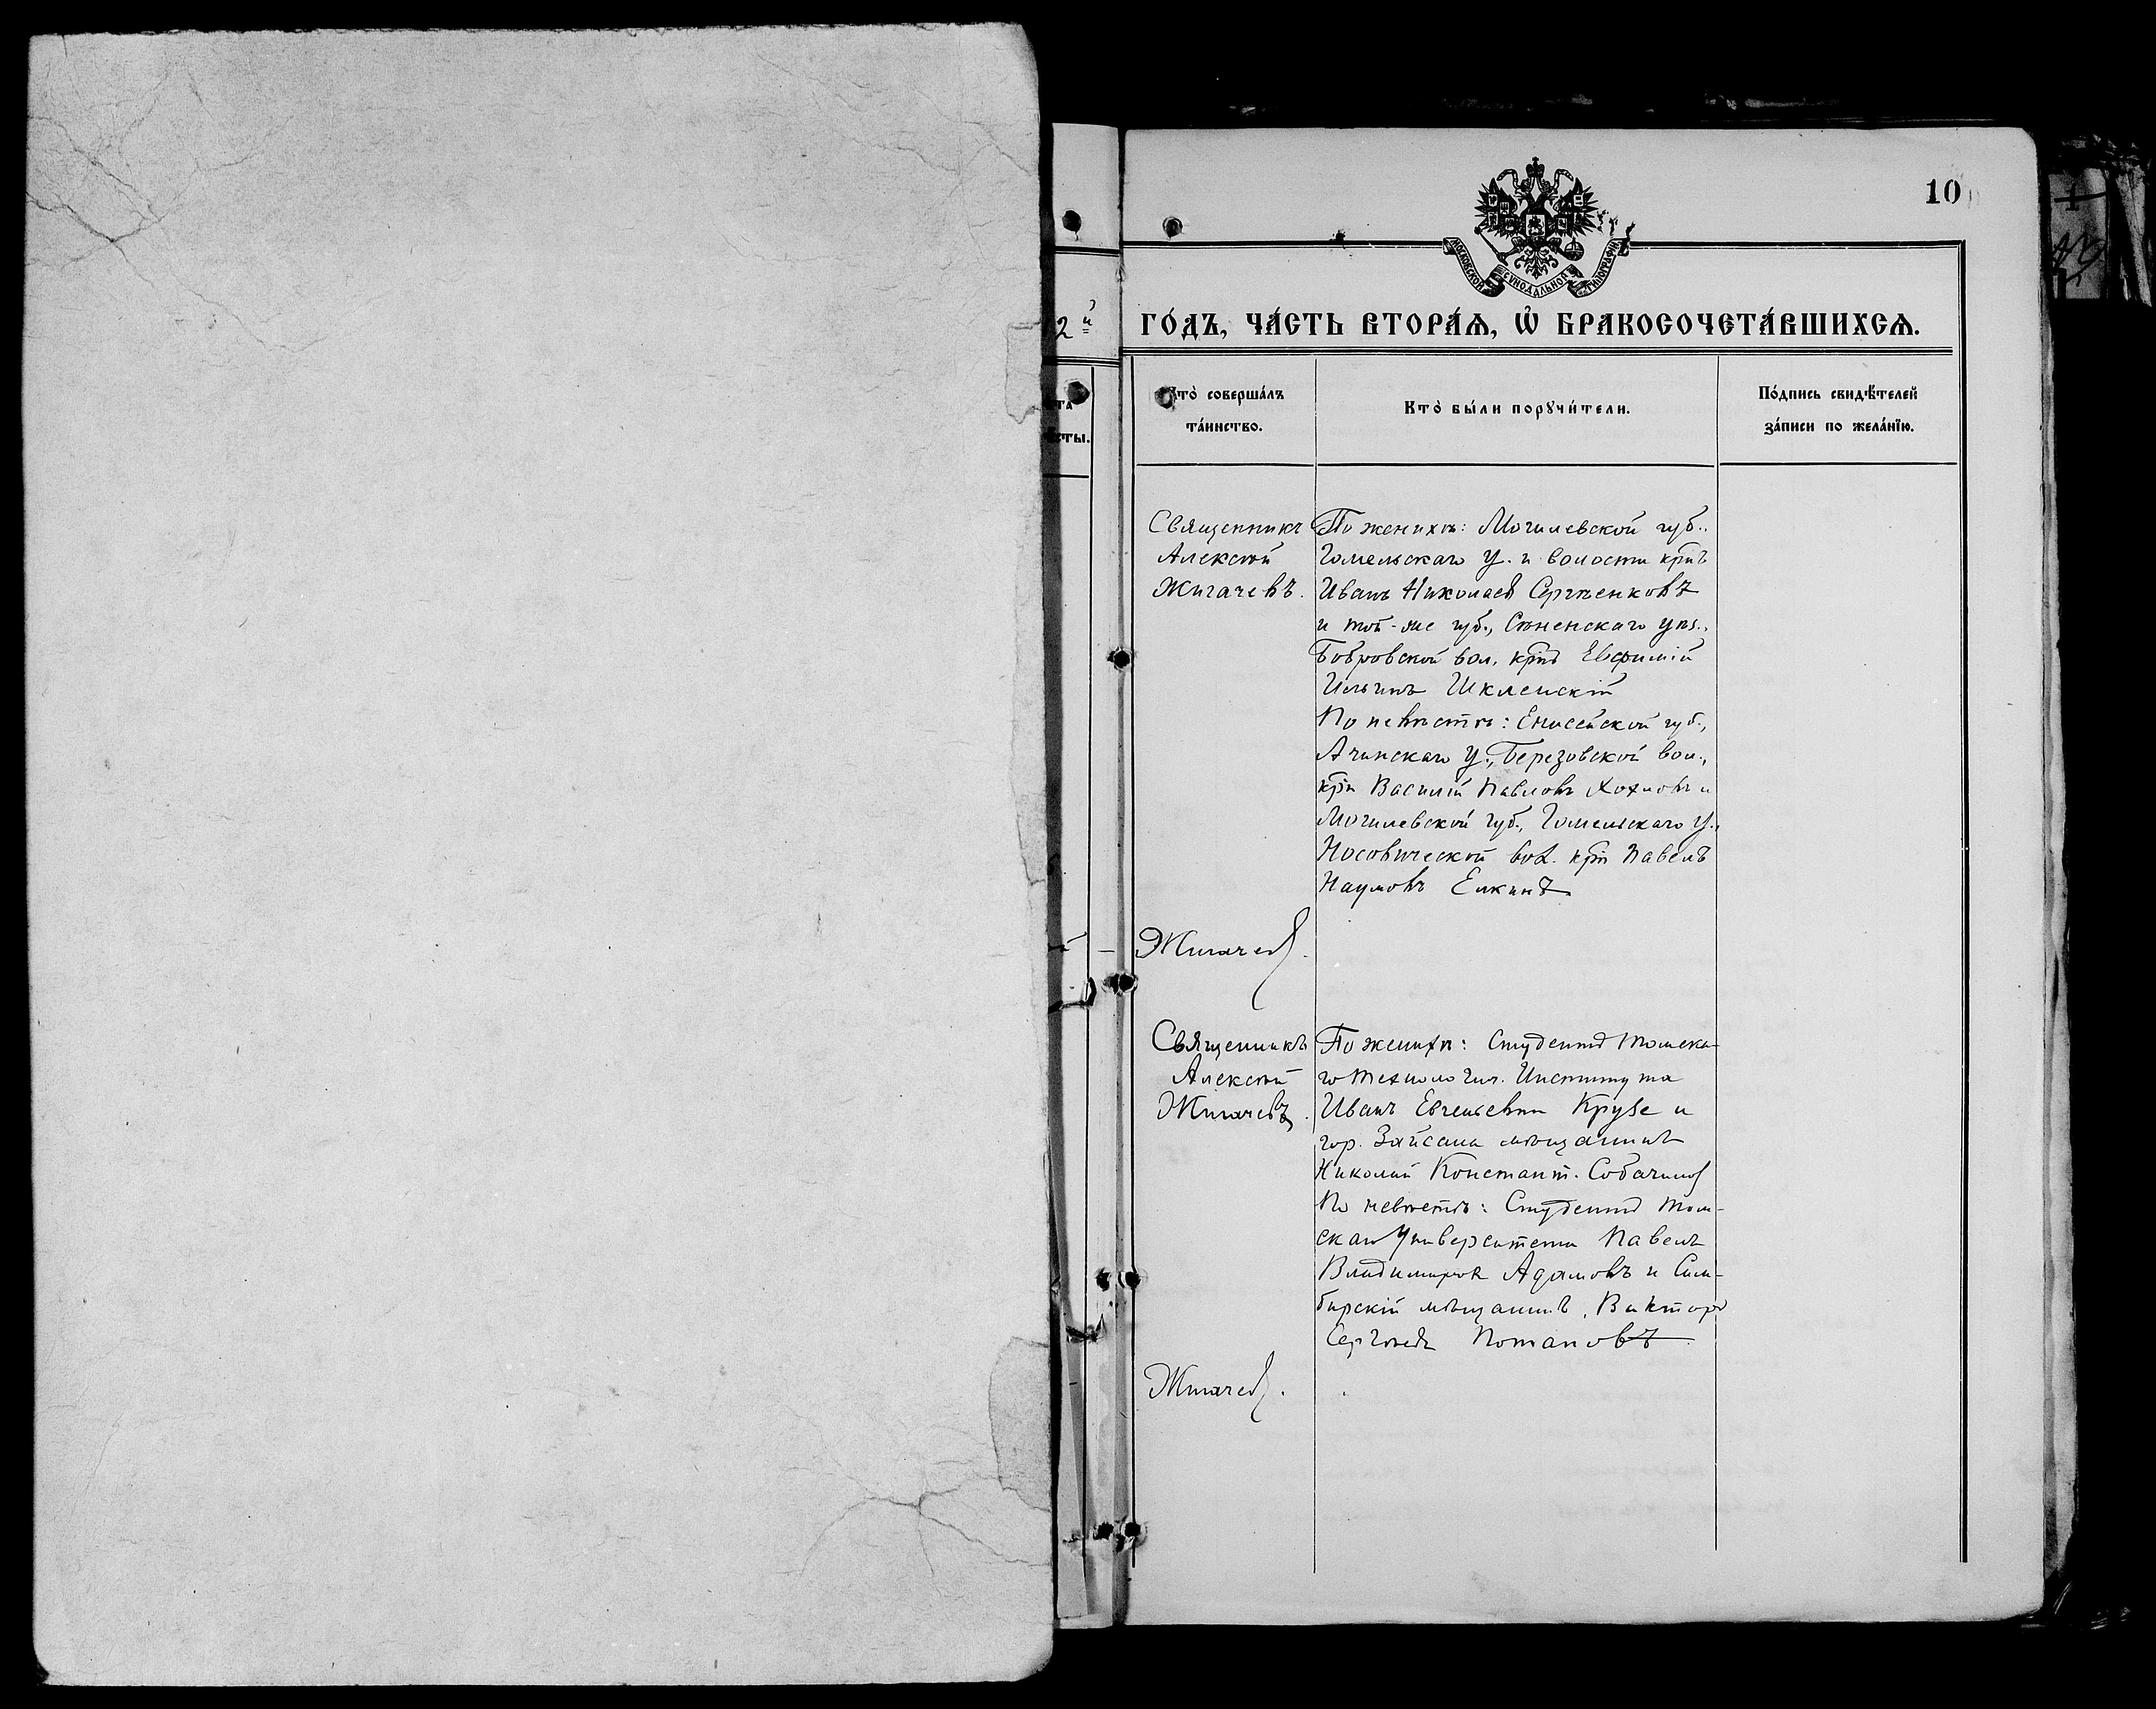 10
МОСКОВСКОЙ СѴНОДАЛЬНОЙ ТИПОГРАФІИ
2й
ГО́ДЪ, ЧА́СТЬ ВТОРА́Ѧ, Ѡ҆ БРАКОСОЧЕТА́ВШИХСѦ.
Кто̀ соверша́лъ
та́инство.
Кто̀ бы́ли порꙋчи́тели.
По́дпись свидѣ́телей
за́писи по жела́нїю.
Священникъ
Алексѣй
Жигачевъ.
По женихѣ: Могилевской губ.,
Гомельскаго у. и волости крнъ
Иванъ Николаев Сергѣенковъ
и той-же губ., Сѣненскаго уѣз.,
Бобровской вол. крнъ Евфимій
Ильинъ Шкленскій
По невѣстѣ: Енисейской губ.,
Ачинскаго у., Березовской вол.,
крн Василій Павловъ Хохловъ и
Могилевской губ., Гомельскаго у.,
Носовической вол. крн Павелъ
Наумовъ Елкинъ
Жигачев.
Священникъ
Алексѣй
Жигачевъ.
По женихѣ: Студентъ Томска-
го Технологич. Института
Иванъ Евгеньевич Крузе и
гор. Зайсана мѣщанинъ
Николай Констант. Собачинов
По невѣстѣ: Студентъ Том-
скаго Университета Павелъ
Владимиров Адамовъ и Сим-
бирскій мѣщанинъ, Викторъ
Сергѣевъ Потаповъ
Жигачев.